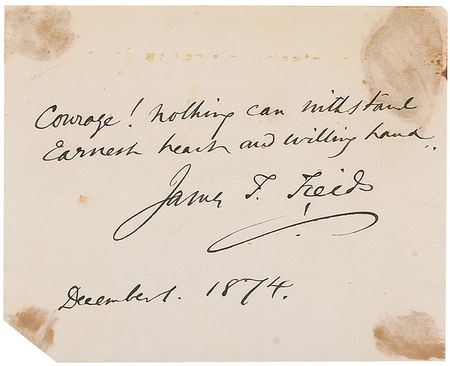 Courage! nothing can withstand
Earnest heart and willing hand.
James T. Fields
December 1. 1874.